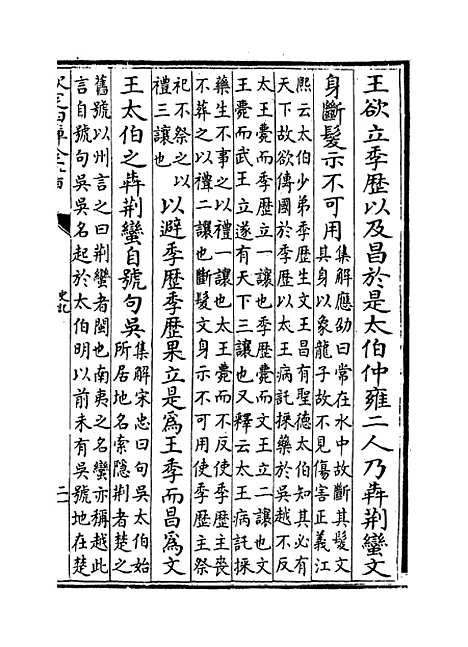 王欲立季歴以及昌於是太伯仲雍二人乃犇荆蠻文
身斷髮示不可用
集解應劭曰常在水中故斷其髮文
其身以象龍子故不見傷害正義江
熙云太伯少弟季歴生文王昌有聖德太伯知其必有
天下故欲傳國於季歴以太王病託採藥於吴越不反
太王薨而季歴立一讓也季歴薨而文王立二讓也文
王薨而武王立遂有天下三讓也又釋云太王病託採
藥生不事之以禮一讓也太王薨而不反使季歴主喪
不葬之以禮二讓也斷髮文身示不可用使季歴主祭
祀不祭之以
禮三讓也
以避季歴季歴果立是爲王季而昌爲文
王太伯之犇荆蠻自號句吳
集解宋忠曰句吳太伯始
所居地名索隱荆者楚之
舊號以州言之曰荆蠻者閩也南夷之名蠻亦稱越此
言自號句吳吳名起於太伯明以前未有吳號地在楚
史記